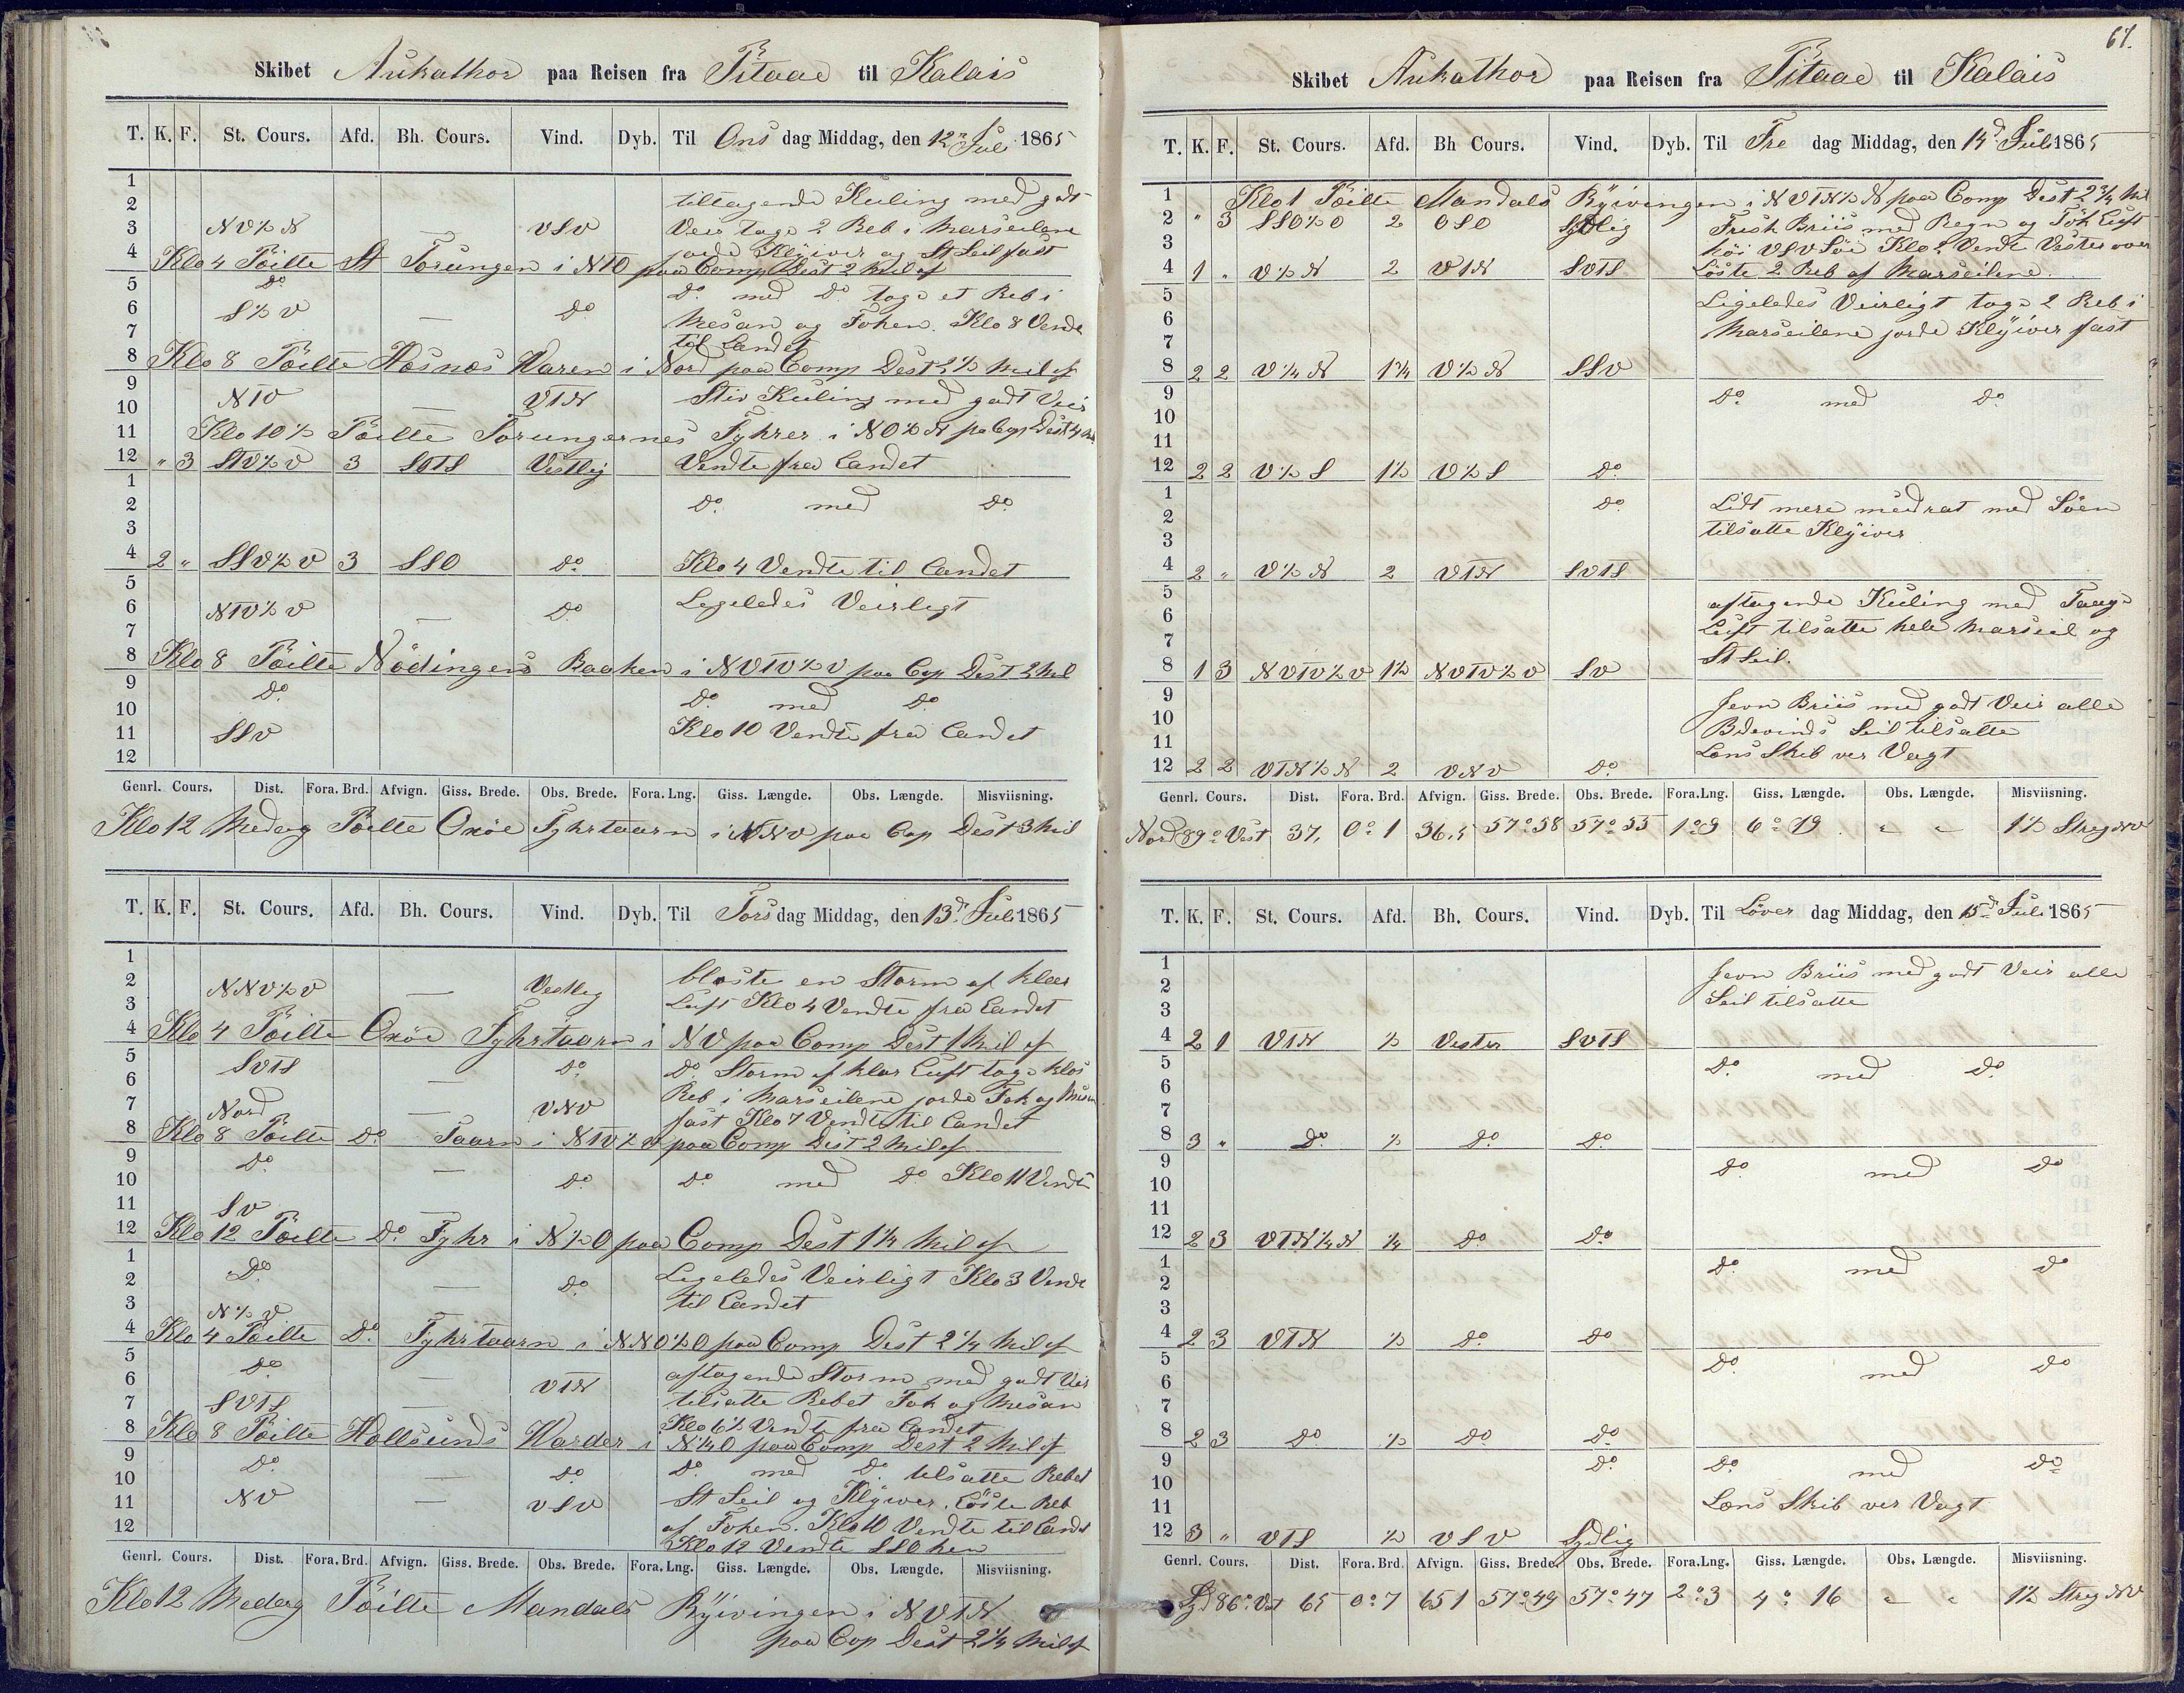 Skibet Aukathor paa Reisen fra Pitaae til Kalais
T. K. F. St. Cours. Afd. Bh. Cours. Vind. Dyb. Til Ons dag Middag, den 12te Juli 1865
1
2 tiltagende Kuling med godt
3 NV½N — VSV Veir toge 2 Reb i Marseilene
4 jorde Klÿiver og St Seil fast
Klo 4 Pöilte St Torungen i NTO paa Comp Dest 2 Mil af
5 Do Do med Do toge et Reb i
6 S½V — Do Mesan og Foken. Klo 8 Vende
7 til Landet
8 Klo 8 Pöilte Hosnæs Waren i Nord paa Comp Dest 2½ Mil af
9 NTV — VTN Stiv Kuling med godt Veir
10
11 Klo 10½ Pöilte Torungernes Fyhrer i NO½N pa Cop Dest 4 Mil
12 " 3 STV½V 3 SOTS Vestlig Vendte fra Landet
1
2 Do med Do
3
4 2 " SSV½V 3 SSO Do Klo 4 Vendte til Landet
5
6 NTV½V — Do Ligeledes Veirligt
7
8 Klo 8 Pöilte Nödingens Baaken i NVTV½V paa Cop Dest 2 Mil
9 Do Do med Do
10
11 SSV Klo 10 Vendte fra Landet
12
Genrl. Cours. Dist. Fora. Brd. Afvign. Giss. Brede. Obs. Brede. Fora. Lng. Giss. Længde. Obs. Længde. Misviisning.
Klo 12 Medag Pöilte Oxöe Fyhrtaarn i NNV paa Cop Dest 3 Mil
T. K. F. St. Cours. Afd. Bh. Cours. Vind. Dyb. Til Tors dag Middag, den 13de Juli 1865
1
2 NNV½V — Vestlig bløste en Storm af klar
3 Luft Klo 4 Vendte fra Landet
4 Klo 4 Pöilte Oxöe Fyhrtaarn i NV paa Comp Dest 1 Mil af
5 SVTS — Do Do Storm af klar Luft toge klos
6 Reb i Marseilene jorde Fok og Mesan
7 Nord — VNV fast Klo 7 Vendte til Landet
8 Klo 8 Pöilte Do Taarn i NTV½V paa Comp Dest 2 Mil af
9 Do — Do Do med Do Klo 11 Vendte
10
11 SV —
12 Klo 12 Pöilte Do Fyhr i N½O paa Comp Dest 1¼ Mil af
1 Do — Do Ligeledes Veirligt Klo 3 Vende
2 til Landet
3 N½V
4 Klo 4 Pöilte Do Fyhrtaarn i NNO½O paa Comp Dest 2¼ Mil af
5 Do — VTN aftagende Storm med godt Veir
6 tilsatte Rebet Fok og Mesan
7 SVTS Klo 6½ Vendte fra Landet
8 Klo 8 Pöilte Hallsunds Warder i N¼O paa Comp Dest 2 Mil af
9 Do — Do Do med Do tilsatte Rebet
10 St Seil og Klÿiver. Löste Reb
11 NV — VSV af Foken. Klo 10 Vendte til Landet
12 Klo 12 Vendte SSO hen
Genrl. Cours. Dist. Fora. Brd. Afvign. Giss. Brede. Obs. Brede. Fora. Lng. Giss. Længde. Obs. Længde. Misviisning.
Klo 12 Medag Pöilte Mandals Rÿivingen i NVTN
paa Cop Dest 2¼ Mil af
67.
Skibet Aukathor paa Reisen fra Pitaae til Kalais
T. K. F. St. Cours. Afd. Bh Cours. Vind. Dyb. Til Fre dag Middag, den 14de Juli 1865
1 Klo 1 Pöilte Mandals Rÿivingen i NVTN½N paa Comp Dest 2¾ Mil
2 " 3 SSO½O 2 OSO Sydlig Frisk Briis med Regn og Tök Luft
3 höi VSV Söe Klo 2 Vendt Vester over
4 1 " V½N 2 VTN SVTS Löste 2 Reb af Marseilene.
5 Ligeledes Veirligt toge 2 Reb i
6 Marseilene jorde Klÿiver fast
7
8 2 2 V¼N 1¾ V½N SSV
9 Do med Do
10
11
12 2 2 V½S 1½ V½S Do
1 Do Lidt mere meidrat med Söen
2 tilsatte Klÿiver
3
4 2 " V½N 2 VTN SVTS
5 aftagende Kuling med Taage
6 Luft tilsatte hele Marseil og
7 St Seil.
8 1 3 NVTV½V 1½ NVTV½V SV
9 Jevn Briis med godt Veir alle
10 Bidevinds Seil tilsatte
11 Læns Skib ver Vagt
12 2 2 VTN½N 2 VNV Do
Genrl. Cours. Dist. Fora. Brd. Afvign. Giss. Brede. Obs. Brede. Fora. Lng. Giss. Længde. Obs. Længde. Misviisning.
Nord 89° Vest 37, 0°1 36,5 57°58 57°55 1°9 6°19 " " 1½ Streg NV
T. K. F. St. Cours. Afd. Bh. Cours. Vind. Dyb. Til Löver dag Middag, den 15de Juli 1865
1 Jevn Briis med godt Veir alle
2 Seil tilsatte
3
4 2 1 VTN ½ Vester SVTS
5 Do med Do
6
7
8 3 " Do ½ Do Do
9 Do med Do
10
11
12 2 3 VTN¼N ¼ Do Do
1 Do med Do
2
3
4 2 3 VTN ½ Do Do
5 Do med Do
6
7
8 2 3 Do ½ Do Do
9 Do Do med Do
10
11 Læns Skib ver Vagt
12 3 " VTS ½ VSV Sydlig
Genrl. Cours. Dist. Fora. Brd. Afvign. Giss. Brede. Obs. Brede. Fora. Lng. Giss. Længde. Obs. Længde. Misviisning.
Syd 86° Vest 65 0°7 651 57°49 57°47 2°3 4°16 " " 1½ Streg NV